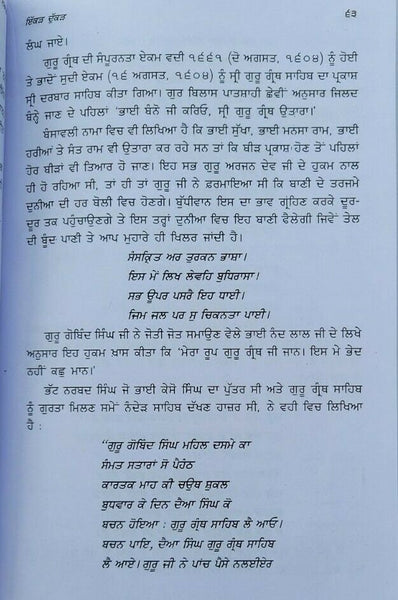 ਇੱਕੜ ਦੁੱਕੜ
੬੩
ਲੰਘ ਜਾਏ।
ਗੁਰੂ ਗ੍ਰੰਥ ਦੀ ਸੰਪੂਰਨਤਾ ਏਕਮ ਵਦੀ ੧੬੬੧ (ਦੋ ਅਗਸਤ, ੧੬੦੪) ਨੂੰ ਹੋਈ
ਤੇ ਭਾਦੋਂ ਸੁਦੀ ਏਕਮ (੧੬ ਅਗਸਤ, ੧੬੦੪) ਨੂੰ ਸ੍ਰੀ ਗੁਰੂ ਗ੍ਰੰਥ ਸਾਹਿਬ ਦਾ ਪ੍ਰਕਾਸ਼
ਸ੍ਰੀ ਦਰਬਾਰ ਸਾਹਿਬ ਕੀਤਾ ਗਿਆ। ਗੁਰ ਬਿਲਾਸ ਪਾਤਸ਼ਾਹੀ ਛੇਵੀਂ ਅਨੁਸਾਰ ਜਿਲਦ
ਬੰਨ੍ਹੇ ਜਾਣ ਦੇ ਪਹਿਲਾਂ 'ਭਾਈ ਬੰਨੋ ਜੀ ਕਰਿਓ, ਸ੍ਰੀ ਗੁਰੂ ਗ੍ਰੰਥ ਉਤਾਰਾ।'
ਬੰਸਾਵਲੀ ਨਾਮਾ ਵਿਚ ਵੀ ਲਿਖਿਆ ਹੈ ਕਿ ਭਾਈ ਸੁੱਖਾ, ਭਾਈ ਮਨਸਾ ਰਾਮ, ਭਾਈ
ਹਰੀਆਂ ਤੇ ਸੰਤ ਰਾਮ ਵੀ ਉਤਾਰਾ ਕਰ ਰਹੇ ਸਨ ਤਾਂ ਕਿ ਬੀੜ ਪ੍ਰਕਾਸ਼ ਹੋਣ ਤੋਂ ਪਹਿਲਾਂ
ਹੋਰ ਬੀੜਾਂ ਵੀ ਤਿਆਰ ਹੋ ਜਾਣ। ਇਹ ਸਭ ਗੁਰੂ ਅਰਜਨ ਦੇਵ ਜੀ ਦੇ ਹੁਕਮ ਨਾਲ
ਹੀ ਹੋ ਰਹਿਆ ਸੀ, ਤਾਂ ਹੀ ਤਾਂ ਗੁਰੂ ਜੀ ਨੇ ਫ਼ਰਮਾਇਆ ਸੀ ਕਿ ਬਾਣੀ ਦੇ ਤਰਜਮੇ
ਦੁਨੀਆ ਦੀ ਹਰ ਬੋਲੀ ਵਿਚ ਹੋਣਗੇ। ਬੁੱਧੀਵਾਨ ਇਸ ਦਾ ਭਾਵ ਗ੍ਰਹਿਣ ਕਰਕੇ ਦੂਰ-
ਦੂਰ ਤਕ ਪਹੁੰਚਾਉਣਗੇ ਤੇ ਇਸ ਤਰ੍ਹਾਂ ਦੁਨੀਆ ਵਿਚ ਇਹ ਬਾਣੀ ਫੈਲੇਗੀ ਜਿਵੇਂ ਤੇਲ
ਦੀ ਬੂੰਦ ਪਾਣੀ ਤੇ ਆਪ ਮੁਹਾਰੇ ਹੀ ਖਿਲਰ ਜਾਂਦੀ ਹੈ।
ਸੰਸਕ੍ਰਿਤ ਅਰ ਤੁਰਕਨ ਭਾਸ਼ਾ।
ਇਸ ਮੇਂ ਲਿਖ ਲੇਵਹਿ ਬੁਧਿਰਾਸਾ।
ਸਭ ਊਪਰ ਪਸਰੈ ਇਹ ਧਾਈ।
ਜਿਮ ਜਲ ਪਰ ਸੁ ਚਿਕਨਤਾ ਪਾਈ।
ਗੁਰੂ ਗੋਬਿੰਦ ਸਿੰਘ ਜੀ ਨੇ ਜੋਤੀ ਜੋਤ ਸਮਾਉਣ ਵੇਲੇ ਭਾਈ ਨੰਦ ਲਾਲ ਜੀ ਦੇ ਲਿਖੇ
ਅਨੁਸਾਰ ਇਹ ਹੁਕਮ ਖ਼ਾਸ ਕੀਤਾ ਕਿ 'ਮੇਰਾ ਰੂਪ ਗੁਰੂ ਗ੍ਰੰਥ ਜੀ ਜਾਨ। ਇਸ ਮੇ ਭੇਦ
ਨਹੀਂ ਕਛੁ ਮਾਨ।'
ਭੱਟ ਨਰਬਦ ਸਿੰਘ ਜੋ ਭਾਈ ਕੇਸੋ ਸਿੰਘ ਦਾ ਪੁੱਤਰ ਸੀ ਅਤੇ ਗੁਰੂ ਗ੍ਰੰਥ ਸਾਹਿਬ
ਨੂੰ ਗੁਰਤਾ ਮਿਲਣ ਸਮੇਂ ਨੰਦੇੜ ਸਾਹਿਬ ਦੱਖਣ ਹਾਜ਼ਰ ਸੀ, ਨੇ ਵਹੀ ਵਿਚ ਲਿਖਿਆ
ਹੈ :
"ਗੁਰੂ ਗੋਬਿੰਦ ਸਿੰਘ ਮਹਿਲ ਦਸਮੇ ਕਾ
ਸੰਮਤ ਸਤਾਰਾਂ ਸੋ ਪੈਹਠ
ਕਾਰਤਕ ਮਾਹ ਕੀ ਚਉਥ ਸ਼ੁਕਲ
ਬੁਧਵਾਰ ਕੇ ਦਿਨ ਦੈਆ ਸਿੰਘ ਕੋ
ਬਚਨ ਹੋਇਆ : ਗੁਰੂ ਗ੍ਰੰਥ ਸਾਹਿਬ ਲੈ ਆਓ।
ਬਚਨ ਪਾਇ, ਦੈਆ ਸਿੰਘ ਗੁਰੂ ਗ੍ਰੰਥ ਸਾਹਿਬ
ਲੈ ਆਏ। ਗੁਰੂ ਜੀ ਨੇ ਪਾਂਚ ਪੈਸੇ ਨਲਈਏਰ